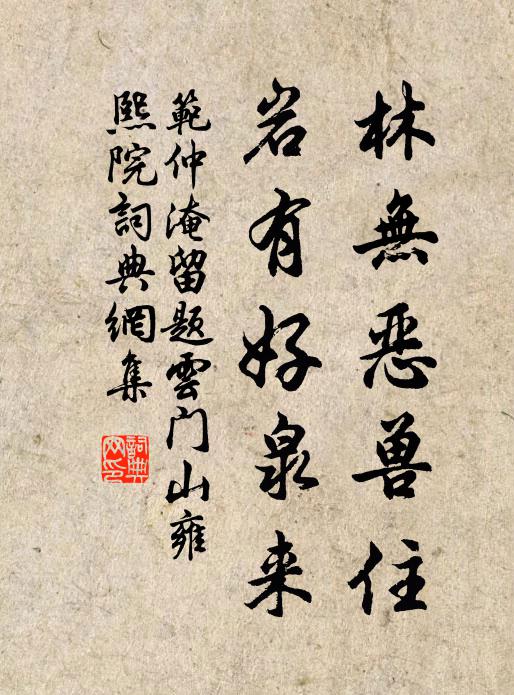 林無恶兽住
岩有好泉来
範仲淹留题雲门山雍
熙院詞典網集
詞典
网印